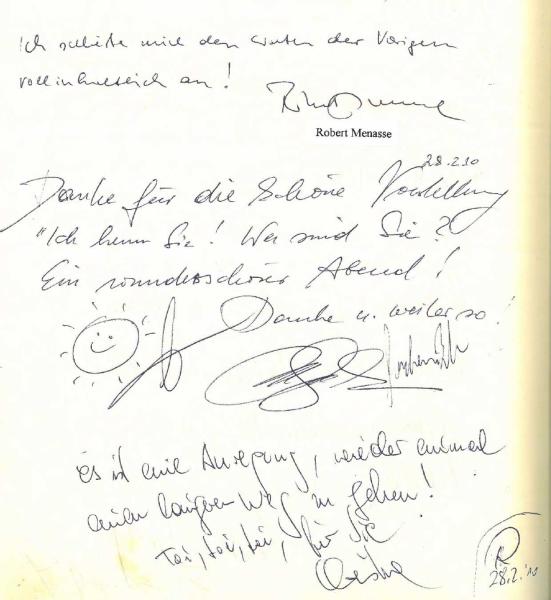 Ich schließe mich den Worten der Vorigen
vollinhaltlich an!
Robert Menasse
28.2.10
Danke für die schöne Vorstellung
"Ich kenn Sie! Wer sind Sie?
Ein wunderschöner Abend!
Danke u. weiter so!
es ist eine Anregung, wieder einmal
einen langen Weg zu gehen!
toi, toi, toi, für Sie
28.2.'10